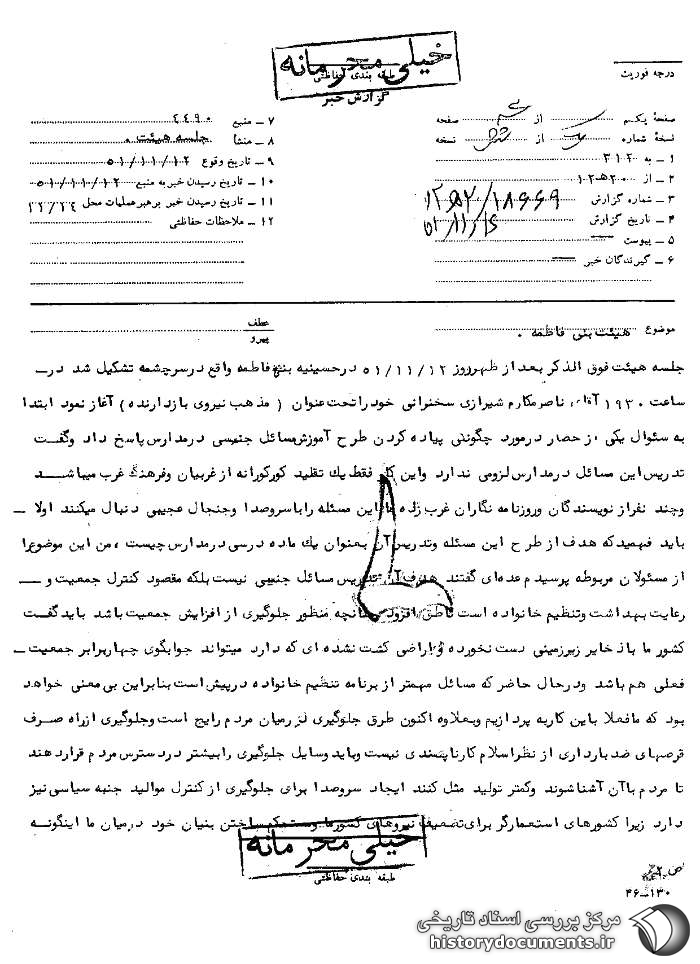 خیلی محرمانه
طبقه بندی حفاظتی
گزارش خبر
درجه فوریت
صفحه یکم از صفحه
نسخه شماره یک از شش نسخه
۱ ـ به ۳۱۲
۲ ـ از ۲۰ هـ ۱۲
۳ ـ شماره گزارش ۱۸۶۶۹/ هـ ۱۲
۴ ـ تاریخ گزارش
۵ ـ پیوست
۶ ـ گیرندگان خبر
۷ ـ منبع ۲۴۹۰
۸ ـ منشأ جلسه هیئت .
۹ ـ تاریخ وقوع ۵۱/۱۱/۱۲
۱۰ ـ تاریخ رسیدن خبر به منبع ۵۱/۱۱/۱۲
۱۱ ـ تاریخ رسیدن خبر برهبر عملیات محل
۱۲ ـ ملاحظات حفاظتی
موضوع هیئت بنی فاطمه .
عطف
پیرو
جلسه هیئت فوق الذکر بعد از ظهر روز ۵۱/۱۱/۱۲ در حسینیه بنی فاطمه واقع در سرچشمه تشکیل شد در ـ
ساعت ۱۹۳۰ آقای ناصر مکارم شیرازی سخنرانی خود را تحت عنوان ( مذهب نیروی بازدارنده ) آغاز نمود ابتدا
به سئوال یکی از حضار در مورد چگونگی پیاده کردن طرح آموزش مسائل جنسی در مدارس پاسخ داد و گفت
تدریس این مسائل در مدارس لزومی ندارد و این کار فقط یک تقلید کورکورانه از غربیان و فرهنگ غرب میباشد
و چند نفر از نویسندگان و روزنامه نگاران غرب زده ما این مسئله را با سروصدا و جنجال عجیبی دنبال میکنند اولا ـ
باید فهمید که هدف از طرح این مسئله و تدریس آن بعنوان یک ماده درسی در مدارس چیست ، من این موضوع را
از مسئولان مربوطه پرسیدم عده ای گفتند هدف آن تدریس مسائل جنسی نیست بلکه مقصود کنترل جمعیت و ـ
رعایت بهداشت و تنظیم خانواده است ناطق افزود چنانچه منظور جلوگیری از افزایش جمعیت باشد باید گفت
کشور ما با ذخایر زیرزمینی دست نخورده و اراضی کشت نشده ای که دارد میتواند جوابگوی چهار برابر جمعیت ـ
فعلی هم باشد و در حال حاضر که مسائل مهمتر از برنامه تنظیم خانواده در پیش است بنابراین بی معنی خواهد
بود که ما فعلا باین کار به پردازیم و بعلاوه اکنون طرق جلوگیری در میان مردم رایج است و جلوگیری از راه صرف
قرصهای ضد بارداری از نظر اسلام کار ناپسندی نیست و باید وسایل جلوگیری را بیشتر در دسترس مردم قرار دهند
تا مردم با آن آشنا شوند و کمتر تولید مثل کنند ایجاد سروصدا برای جلوگیری از کنترل موالید جنبه سیاسی نیز
دارد زیرا کشورهای استعمارگر برای تضعیف نیروهای کشور ما و مستحکم ساختن بنیان خود در میان ما اینگونه
خیلی محرمانه
طبقه بندی حفاظتی
۴۶-۱۳۰
مرکز بررسی اسناد تاریخی
historydocuments.ir